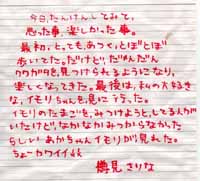 今日たんけんしてみて、
思った事、楽しかった事。
最初、とっても、あつく、とぼとぼ
歩いてた。だけど、だんだん
クワガタを、見つけられるようになり、
楽しくなってきた。最後は、私の大好き
な、イモリちゃんを、見に行った。
イモリのたまごを、みつけようと、してる人が
いたけど、なかなかみつからなかった
らしい。あかちゃんイモリが見れた。
ちょーカワイイ
樽見 さりな